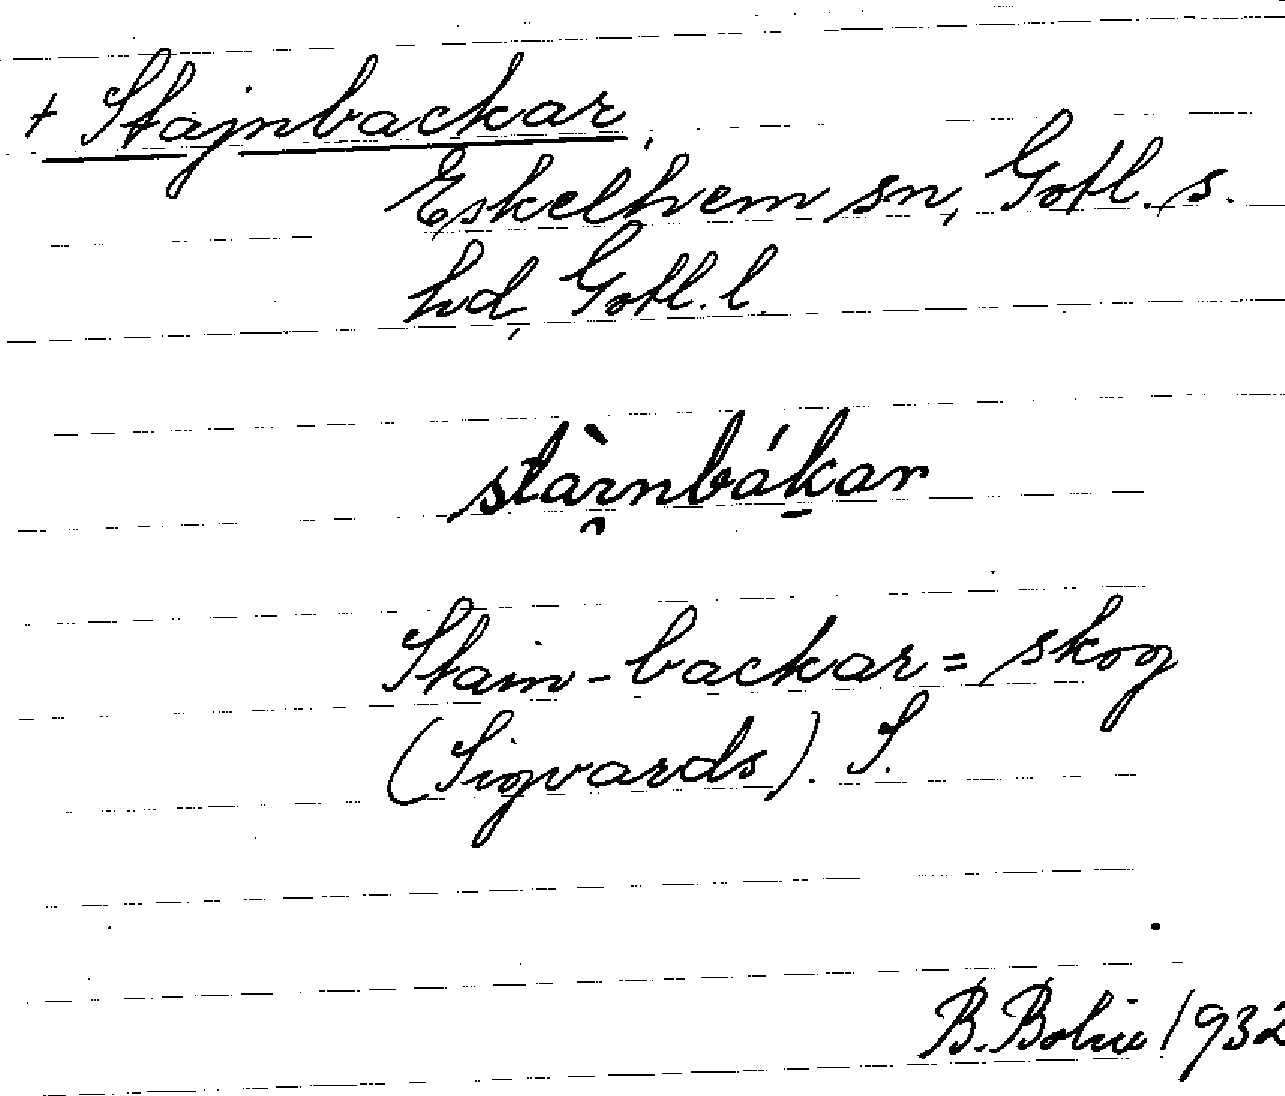 + Stajnbackar.
Eskelhem sn, Gotl. s.
hd, Gotl. l.
stàı̯nbák̠ar
Stain-backar = skog
(Sigvards). S.
B. Bolin 1932